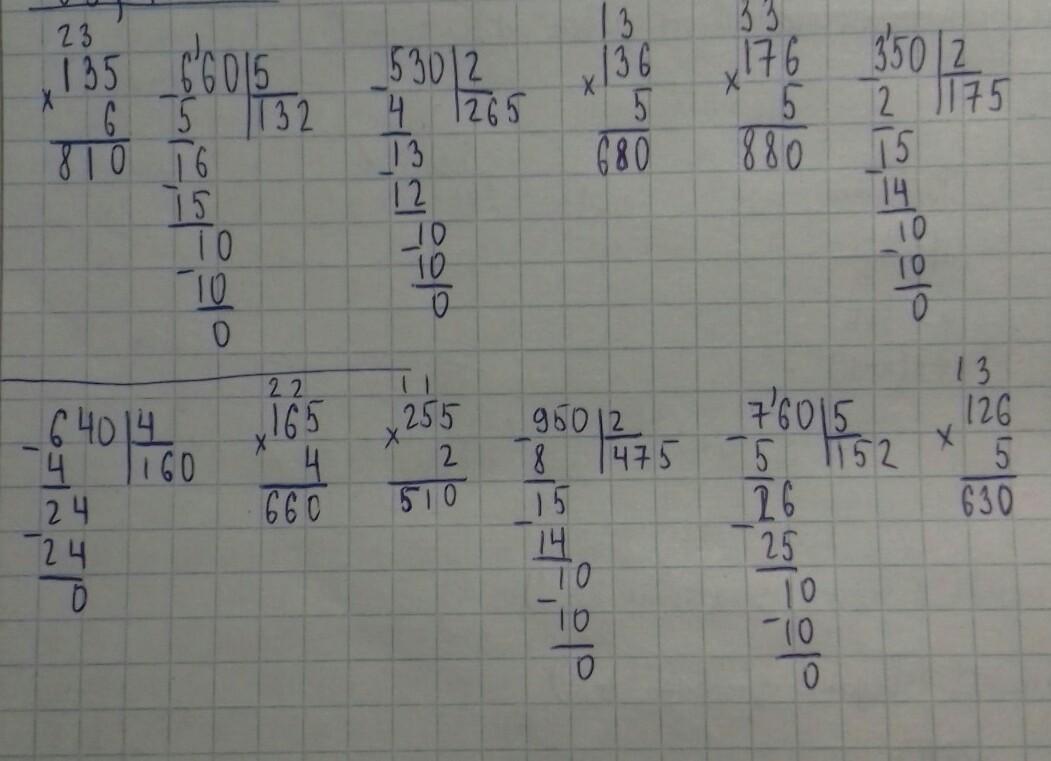 23 13 33
135 6'60|5 530|2 136 176 3'50|2
× 6 - 5 132 - 4 265 × 5 × 5 - 2 175
810 16 13 680 880 15
- 15 - 12 - 14
10 10 10
- 10 - 10 - 10
0 0 0
22 11 13
640|4 165 255 950|2 7'60|5 126
- 4 160 × 4 × 2 - 8 475 - 5 152 × 5
24 660 510 15 26 630
- 24 - 14 - 25
0 10 10
- 10 - 10
0 0